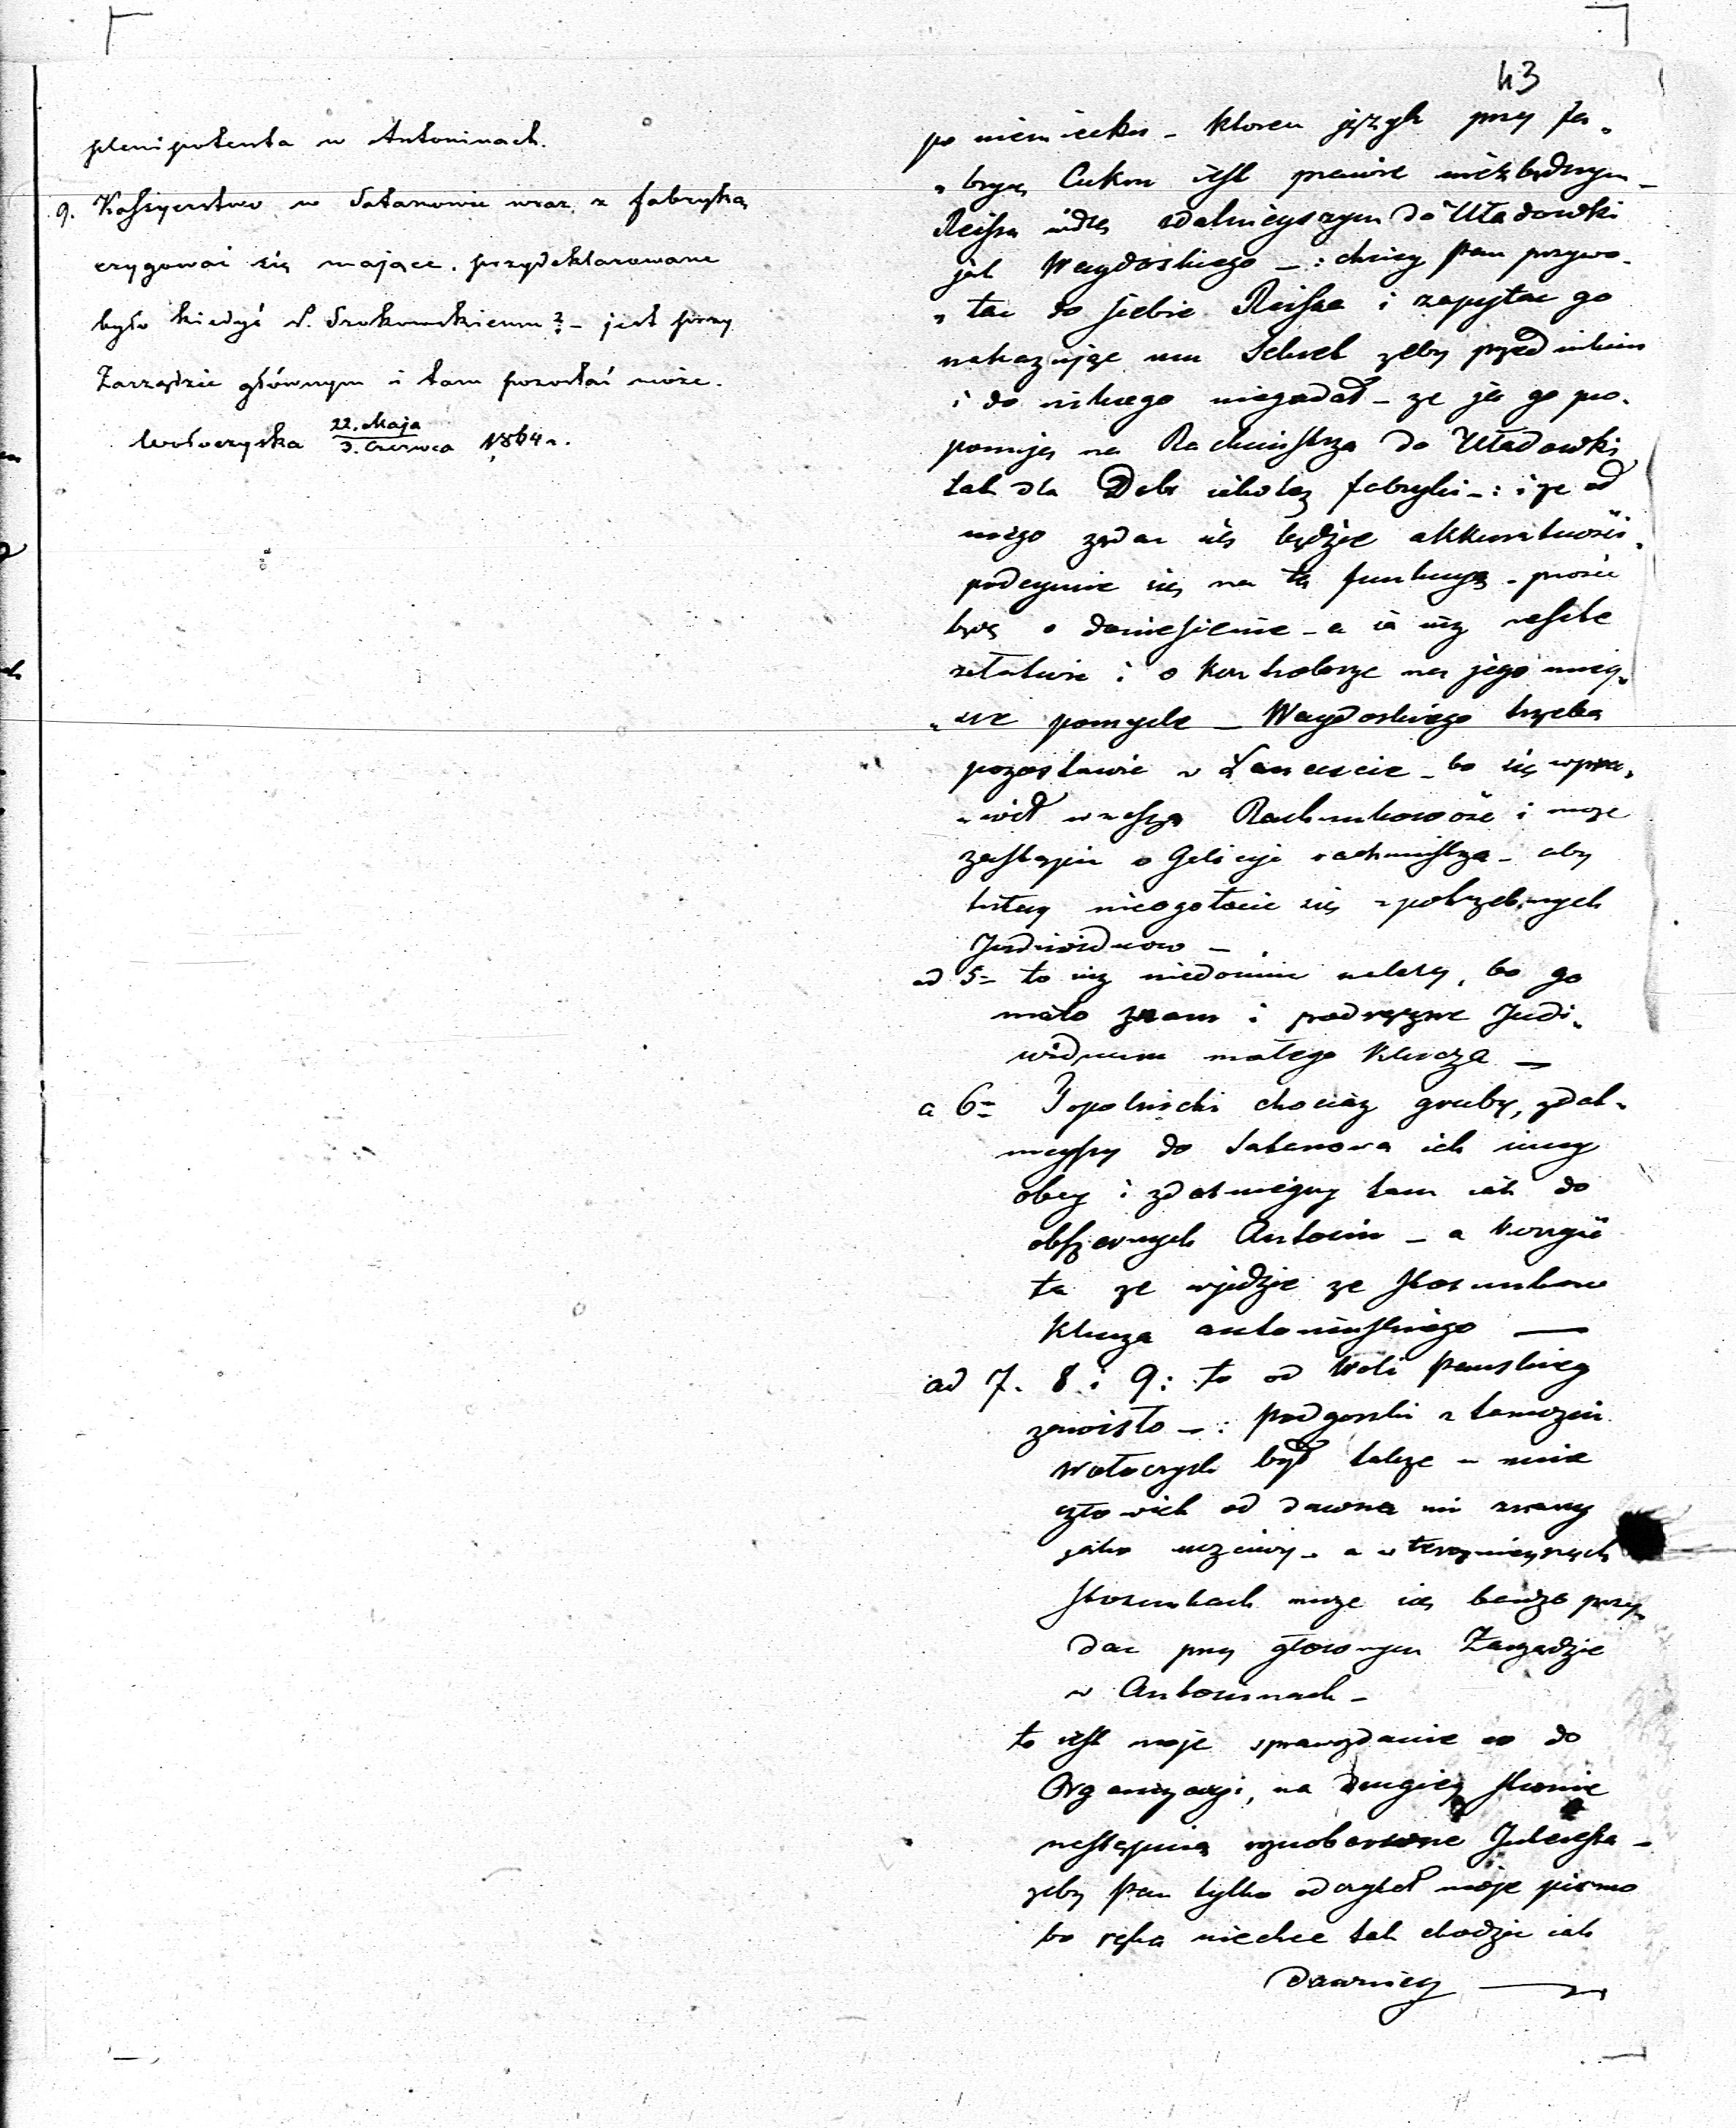 plenipotenta w Antoninach.
9. Kassyerstwo w Satanowie wraz z fabryką
erygować się mające. przydeklarowane
było kiedyś P. Srokowskiemu? – jest przy
Zarządzie głównym i tam pozostać może.
Wołoczyska 22. Maja
3. Czerwca 1864 r.
43
po niemiecku – ktoren język przy fa„
„bryce Cukru iest prawie niezbędnym –
Reissa widzę zdatnieyszym do Uładowki
jak Waydoskiego – : chciey Pan przywo„
„łac do siebie Reissa i zapytac go
nakazując mu Sekret zeby przed nikim
i do nikogo niegadał – ze ja go pro„
ponuję na Rachmistrza do Uładowki
tak dla Dobr iako tez fabryki – : i ze od
niego ządac się będzie akkuratności„
podeymie się na tę funkcyę – proszę
o doniesienie – a ia iuz resztę
załatwie i o Kontrolorze na jego miey„
„sce pomyslę – Waydoskiego trzeba
pozostawic w Łancucie – bo się wpra„
„wił w naszą Rachunkowość i moze
zastąpic w Galicyi rachmistrza – aby
tutay nieogołocic się z potrzebnych
Indiwiduow –
ad 5 – to iuz niedomnie nalezy, bo go
mało znam i podręzne Indi„
widuum małego Klucza –
a 6 – Topolnicki chociaz gruby, zdat„
nieyszy do Satanowa iak inny
obcy i zdatnieyszy tam iak do
obszernych Antonin – a
ta ze wyidzie ze stosunkow
Klucza antoninskiego –
ad 7. 8 i 9: to od Woli Panskiey
zawisło – : Podgorski z
Wołoczysk był takze u mnie
człowiek od dawna mi znany
jako uczciwy – a w terazniejszych
stosunkach moze się bardzo przy„
dac przy głownym Zarządzie
w Antoninach –
to iest moje sprawozdanie co do
Organizacyi, na drugiey stronie
nastąpią roznobarwne Interessa –
zeby Pan tylko odczytał moje pismo
bo ręka niechce tak chodzic iak
dawniey –